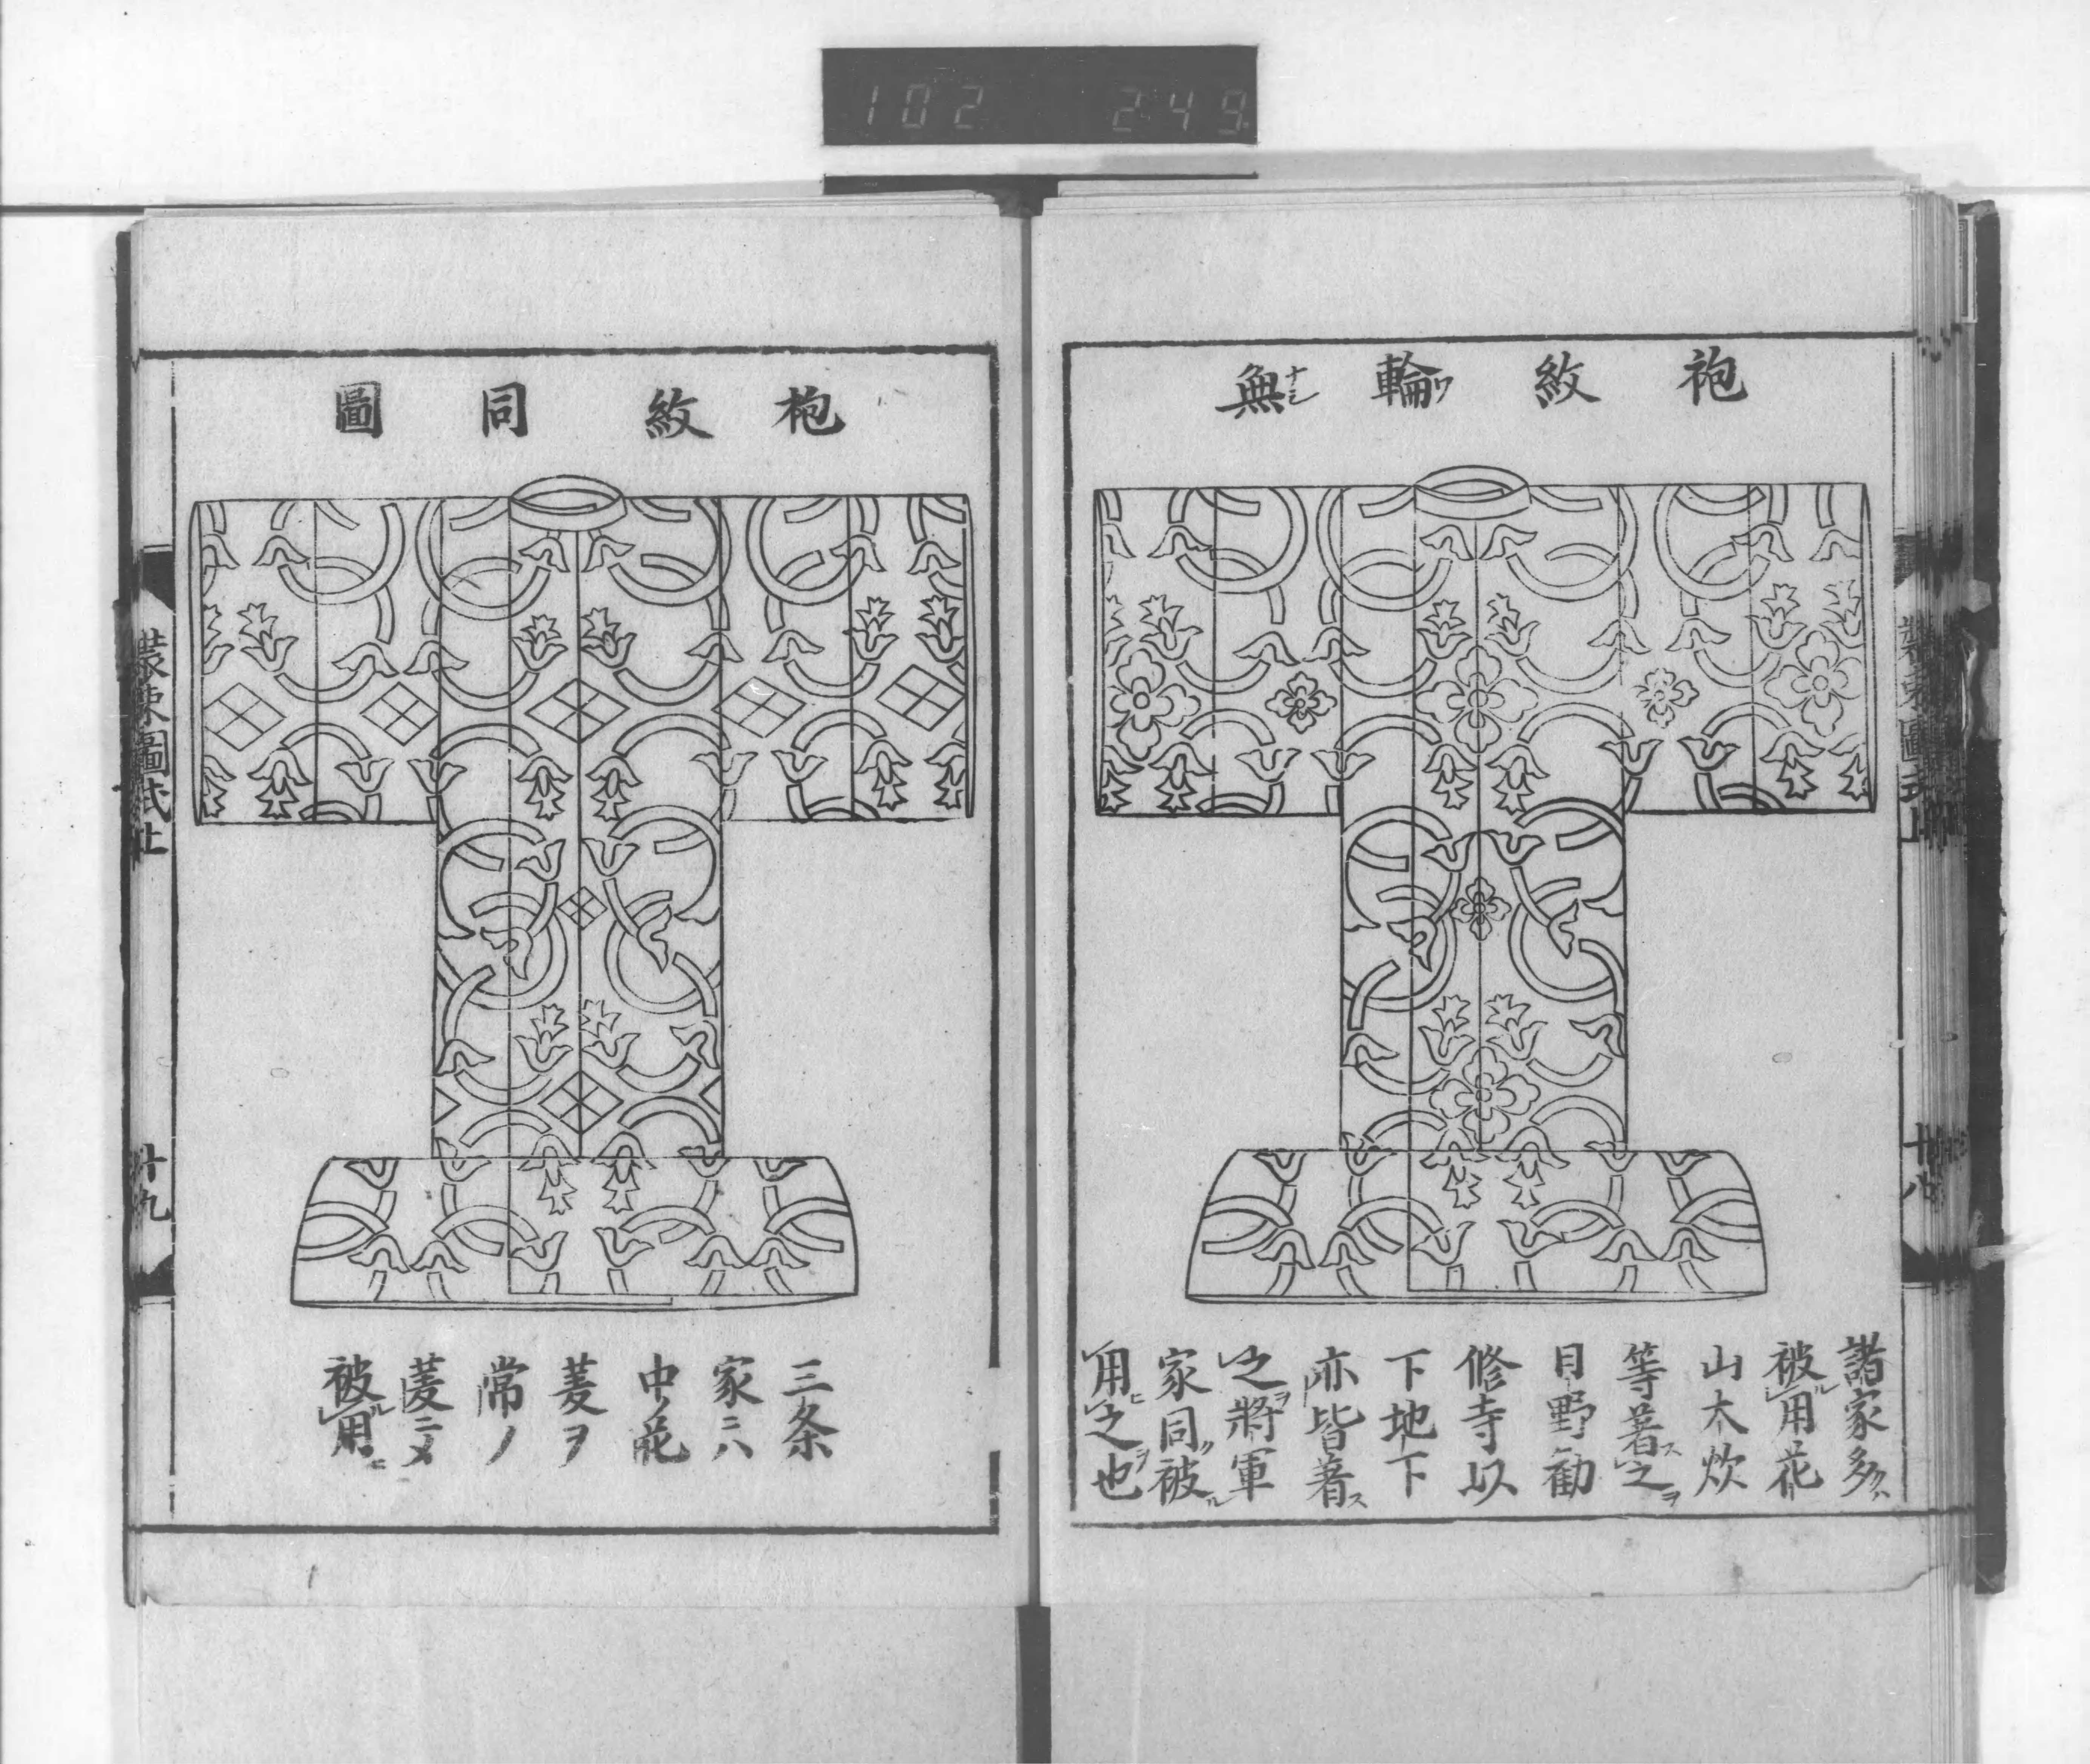 102 249
袍紋輪ワ無ナシ
諸家多クハ
被ル用花
山大炊
等著ス之ヲ
日野勧
修寺以
下地下
亦皆著ス
之ヲ將軍
家同ク被ル
用ヒ之ヲ也
袍紋同圖
三条
家ニハ
中ノ花
菱ヲ
常ノ
菱ニメ
被ル用ヒ
裝束圖式上
廿九